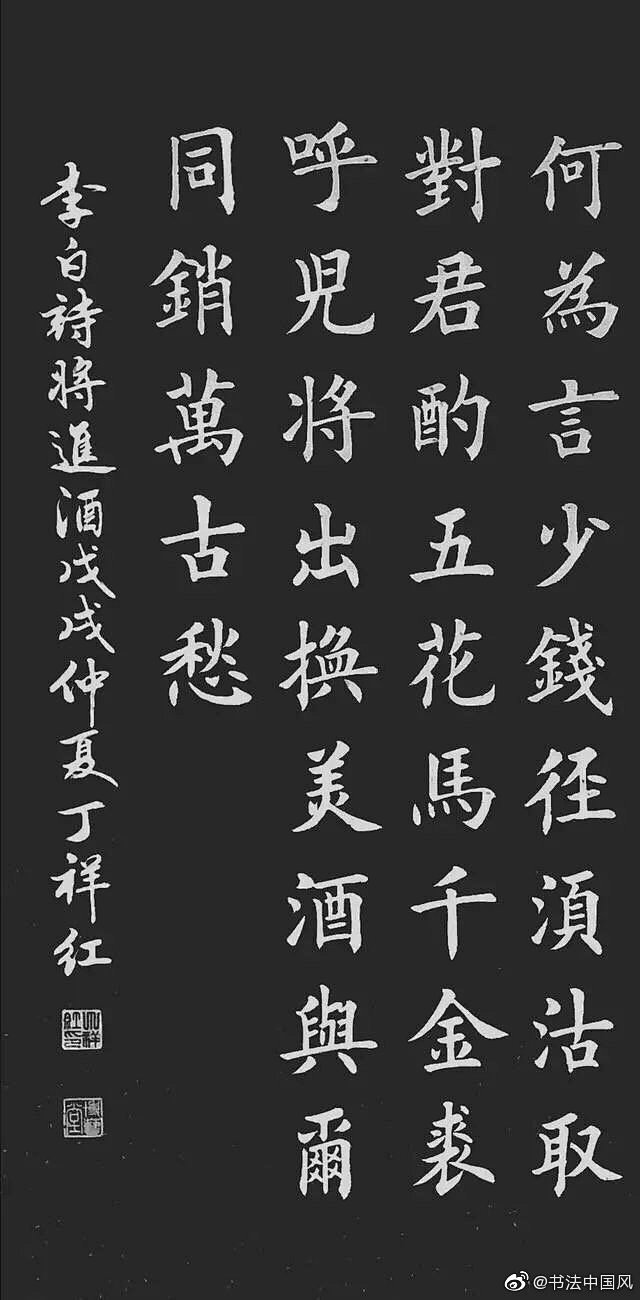 何為言少錢徑須沽取
對君酌五花馬千金裘
呼兒將出換美酒與爾
同銷萬古愁
李白詩將進酒戊戌仲夏丁祥紅
@书法中国风